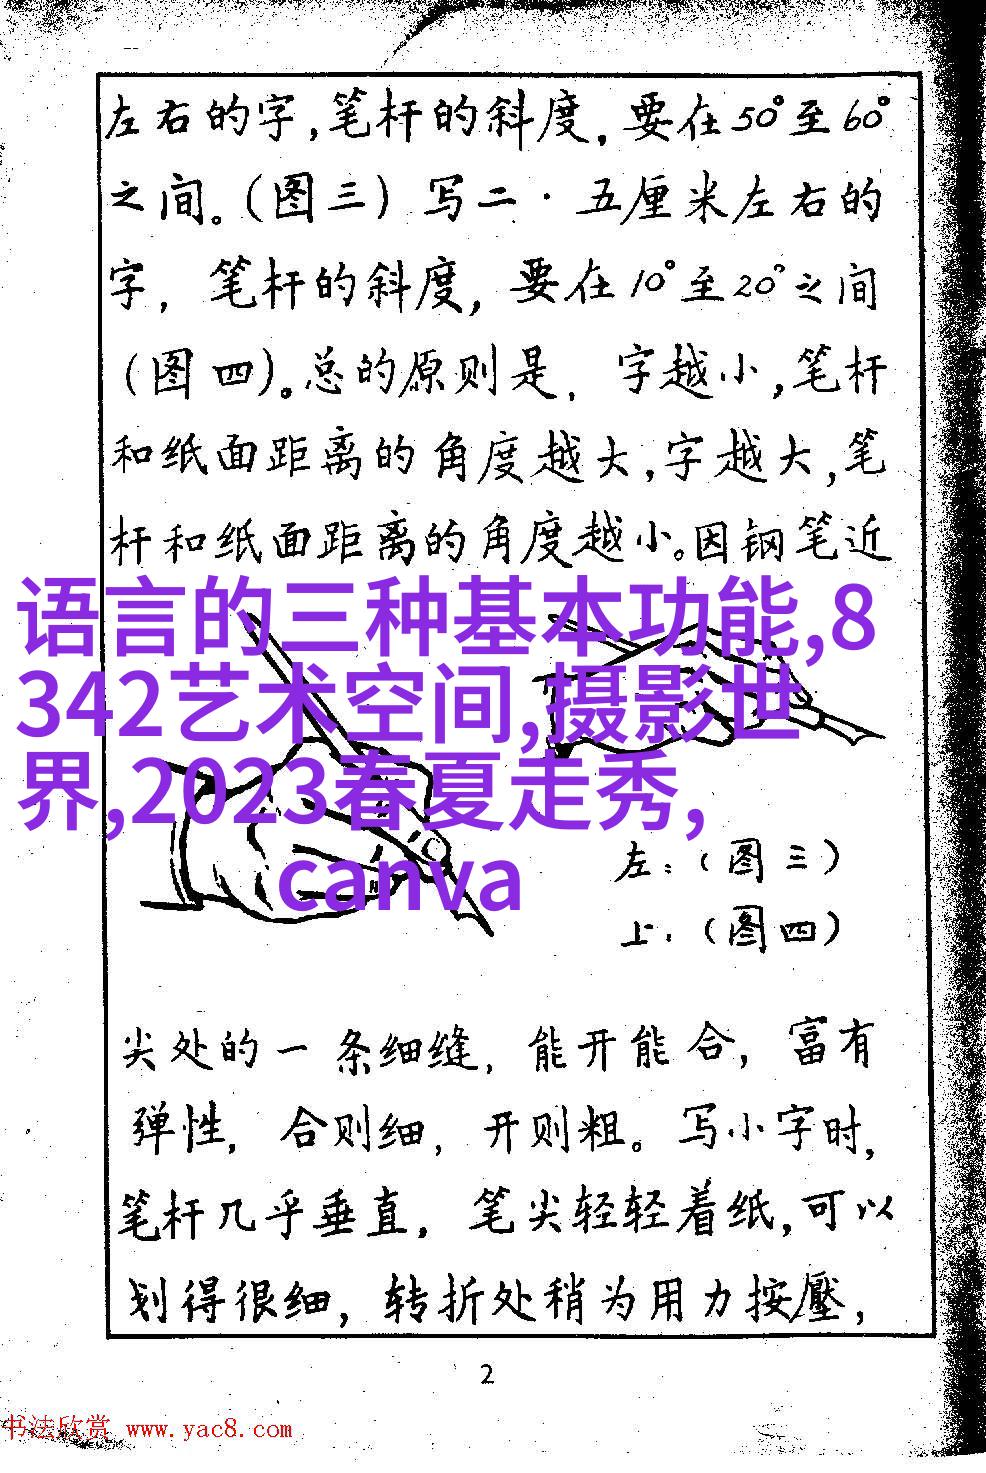 左右的字,笔杆的斜度,要在50°至60°
之间。(图三)写二·五厘米左右的
字,笔杆的斜度,要在10°至20°之间
(图四)。总的原则是,字越小,笔杆
和纸面距离的角度越大,字越大,笔
杆和纸面距离的角度越小。因钢笔近
语言的三种基本功能,8
342艺术空间,摄影世
界,2023春夏走秀,
canva
左:(图三)
上:(图四)
尖处的一条细缝,能开能合,富有
弹性,合则细,开则粗。写小字时,
笔杆几乎垂直,笔尖轻轻着纸,可以
划得很细,转折处稍为用力按壓,
2
书法欣赏 www.yac8.com